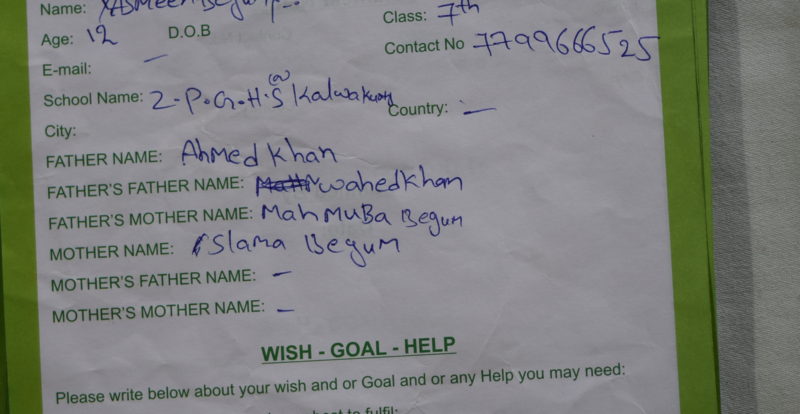 Name: Begum
Class: 7th
Age: 12 D.O.B
Contact No 7799666525
E-mail: —
School Name: Z.P.G.H.S (G) Kalwakurthy
Country: —
City:
FATHER NAME: Ahmed Khan
FATHER'S FATHER NAME: wahed Khan
FATHER'S MOTHER NAME: MahMuBa Begum
MOTHER NAME: iSlama Begum
MOTHER'S FATHER NAME: —
MOTHER'S MOTHER NAME: —
WISH - GOAL - HELP
Please write below about your wish and or Goal and or any Help you may need:
to fulfil: